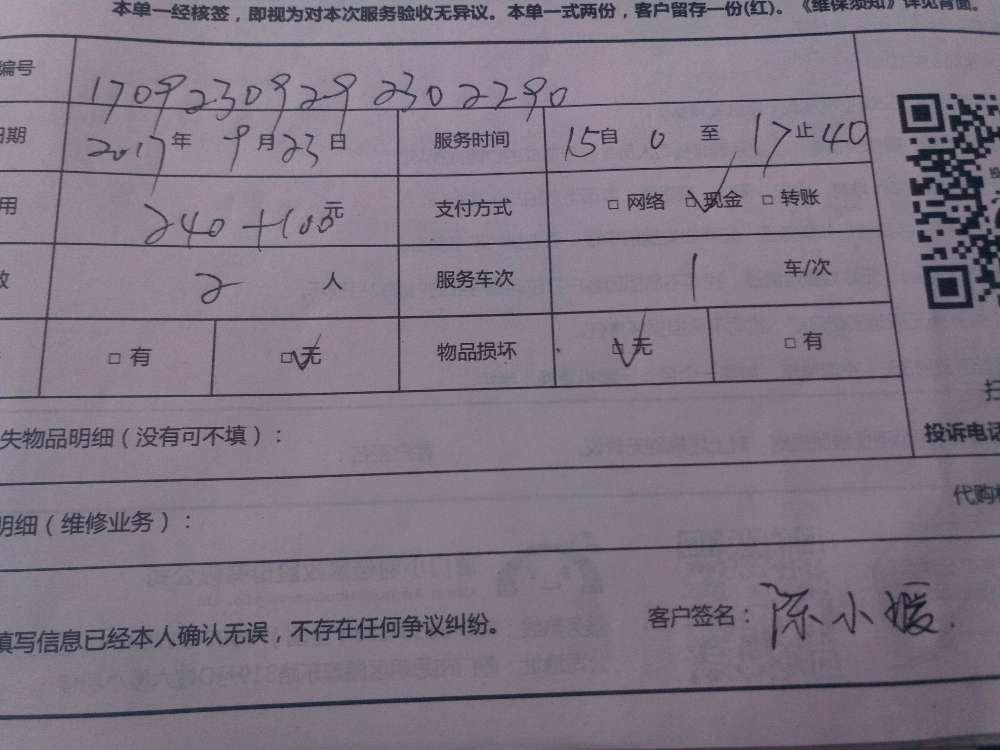 本单一经核签，即视为对本次服务验收无异议。本单一式两份，客户留存一份(红)。《维保须知》详见背面。
编号 17092309292302290
日期 2017年 9月23日 服务时间 15自 0 至 17止40
用 240+100元 支付方式 □ 网络 ☑ 现金 □ 转账
数 2 人 服务车次 1 车/次
□ 有 ☑ 无 物品损坏 ☑ 无 □ 有
扫
失物品明细（没有可不填）： 投诉电话
代购
明细（维修业务）：
填写信息已经本人确认无误，不存在任何争议纠纷。 客户签名：陈小媛